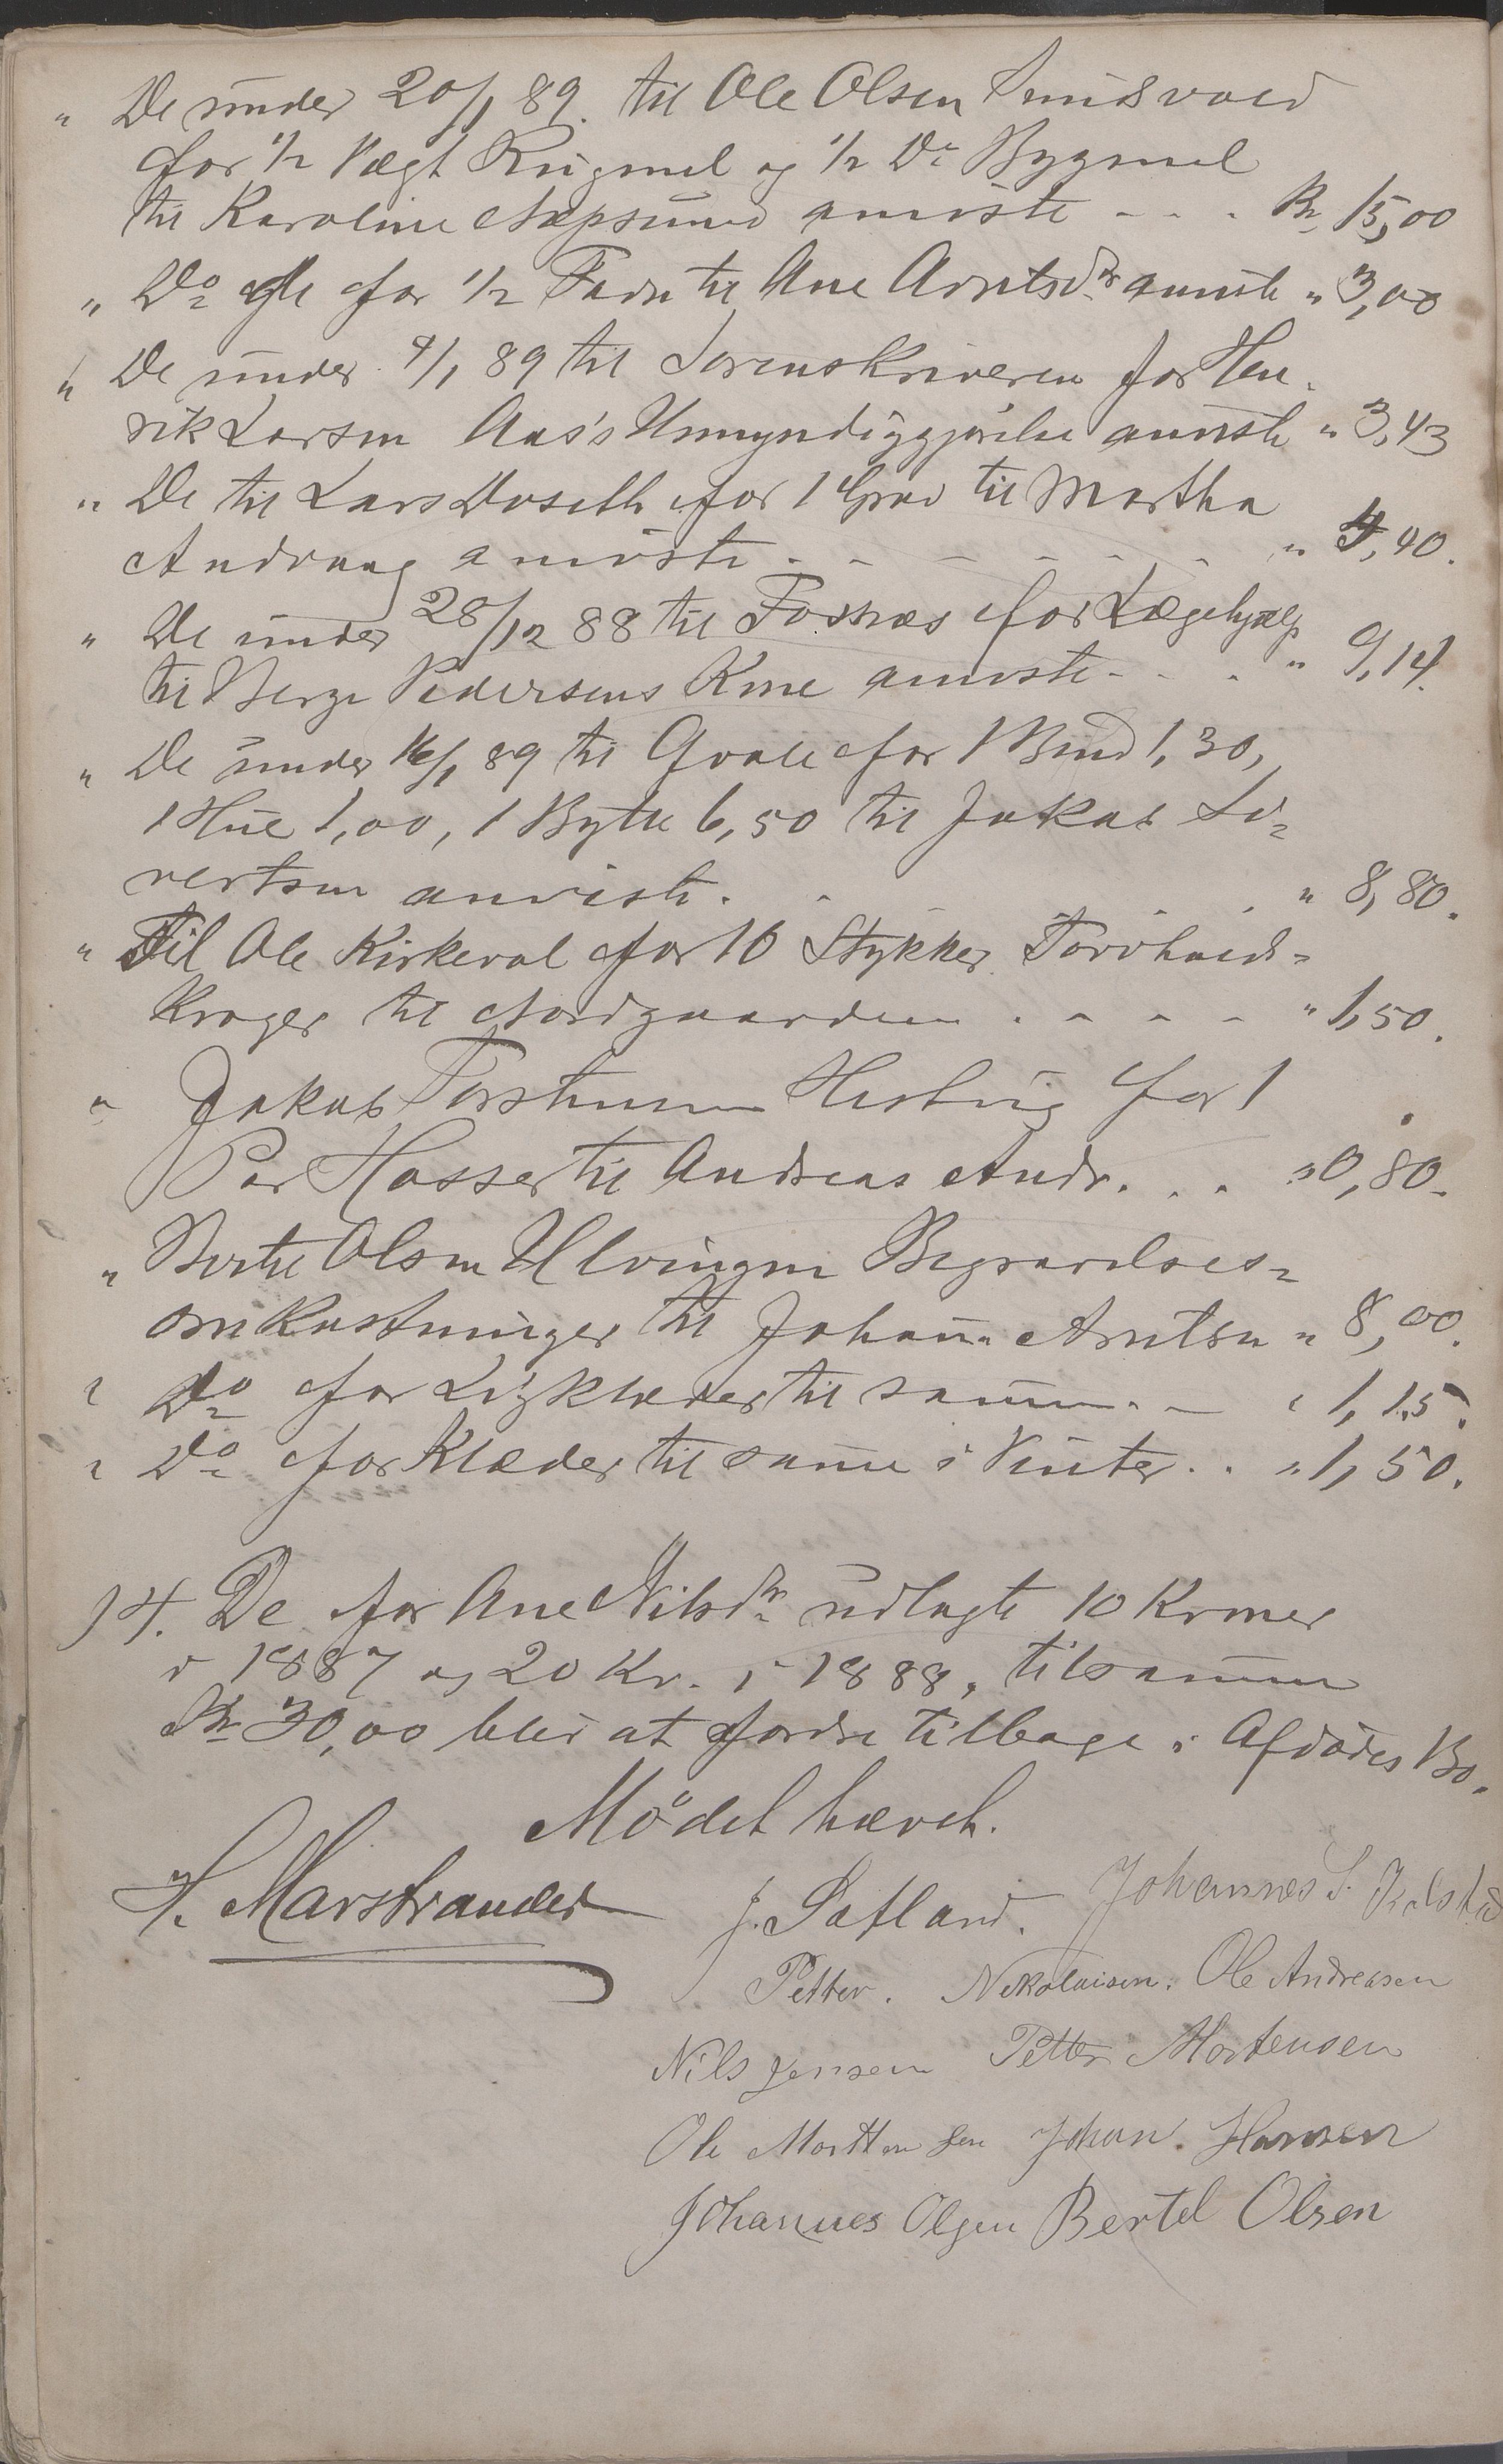 " De under 20/1 89. til Ole Olsen Sundsvold
for 1/2 Vægt Rugmel og 1/2 Do Bygmel
til Karoline Napsund anviste - - . Kr 15,00
" Do for 1/2 Favn til Ane Arntsdtr anviste " 3,00
" De under 4/1 89 til Sorenskriveren for Hen-
rik Larsen Aas's Umyndiggjørelse anviste " 3,43
" De til Lars Doseth for 1 Grav til Martha
Andraag anviste - - - - - - " 4,40.
" De under 28/12 88 til Fosnæs for Lægehjælp
til Berge Pedersens Kone anviste - - . " 9,14.
" De under 16/1 89 til Qvale for 1 Bind 1,30,
1 Hue 1,00, 1 Bytte 6,50 til Jakob Si=
vertsen anviste. - . . " 8,80.
" Til Ole Kirkeval for 16 Stykker Torvholds=
Kroger til Nordgaarden . - - - " 1,50.
" Jakob Torstensen Hestvig for 1
Par Hosser til Andreas Andr. . . " 0,80.
" Bertel Olsen Ulvingen Begravelses=
omkostninger til Johan Arntsen " 8,00.
" Do for Ligklæder til samme. - " 1,15.
" Do for Klæder til samme i Vinter . . " 1,50.
14. De for Ane Nilsdtr udlagte 10 Kroner
i 1887 og 20 Kr. i 1888, tilsammen
Kr 30,00 blev at fordre tilbage i Afdødes Bo.
Mødet hævet.
H. Marstrander J. Satland. Johannes S.
Petter. Nekolaisen. Ole Andreasen
Nils Jensen Petter Mortensen
Ole Morttensen Johan. Hansen
Johannes Olsen Bertel Olsen